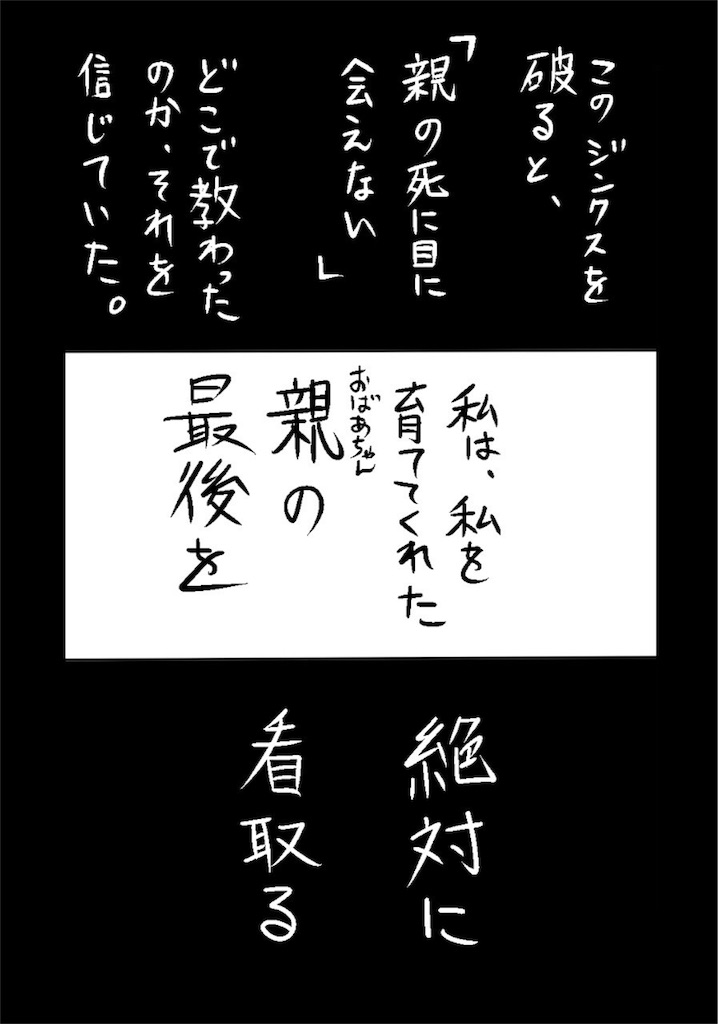 このジンクスを
破ると、
「親の死に目に
会えない」
どこで教わった
のか、それを
信じていた。
私は、私を
育ててくれた
おばあちゃん
親の
最後を
絶対に
看取る